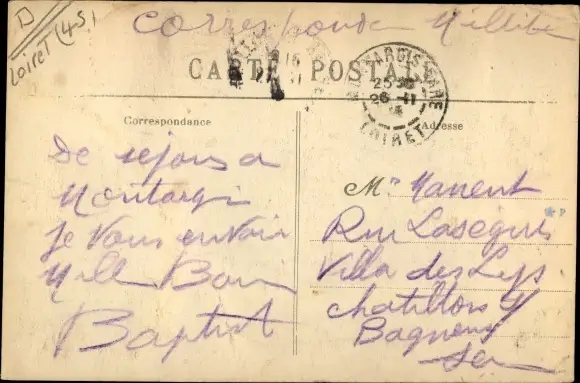 D
Loiret (45)
Correspondance Millite
CARTE POSTALE
MONTARGIS GARE
26 - 11
LOIRET
Correspondance
Adresse
De sejours a
Montargi
je vous envoir
Mill Bon
Baptist
Mr Manent
Rue
Villa des Lys
Chatillons s/
Bagneux
Sei